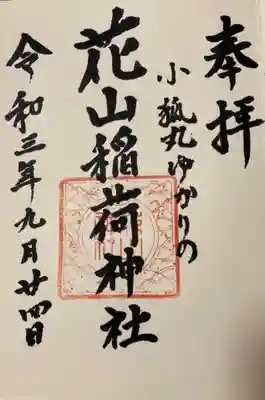 奉拝
小狐丸ゆかりの
花山稲荷神社
令和三年九月廿四日